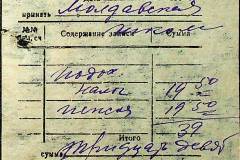 принять Молдавская
№№
сч.сч Содержание записи Сумма
Подох.
налог 19 50
пенсия 19 50
39
Итого
сумма Тридцать девять